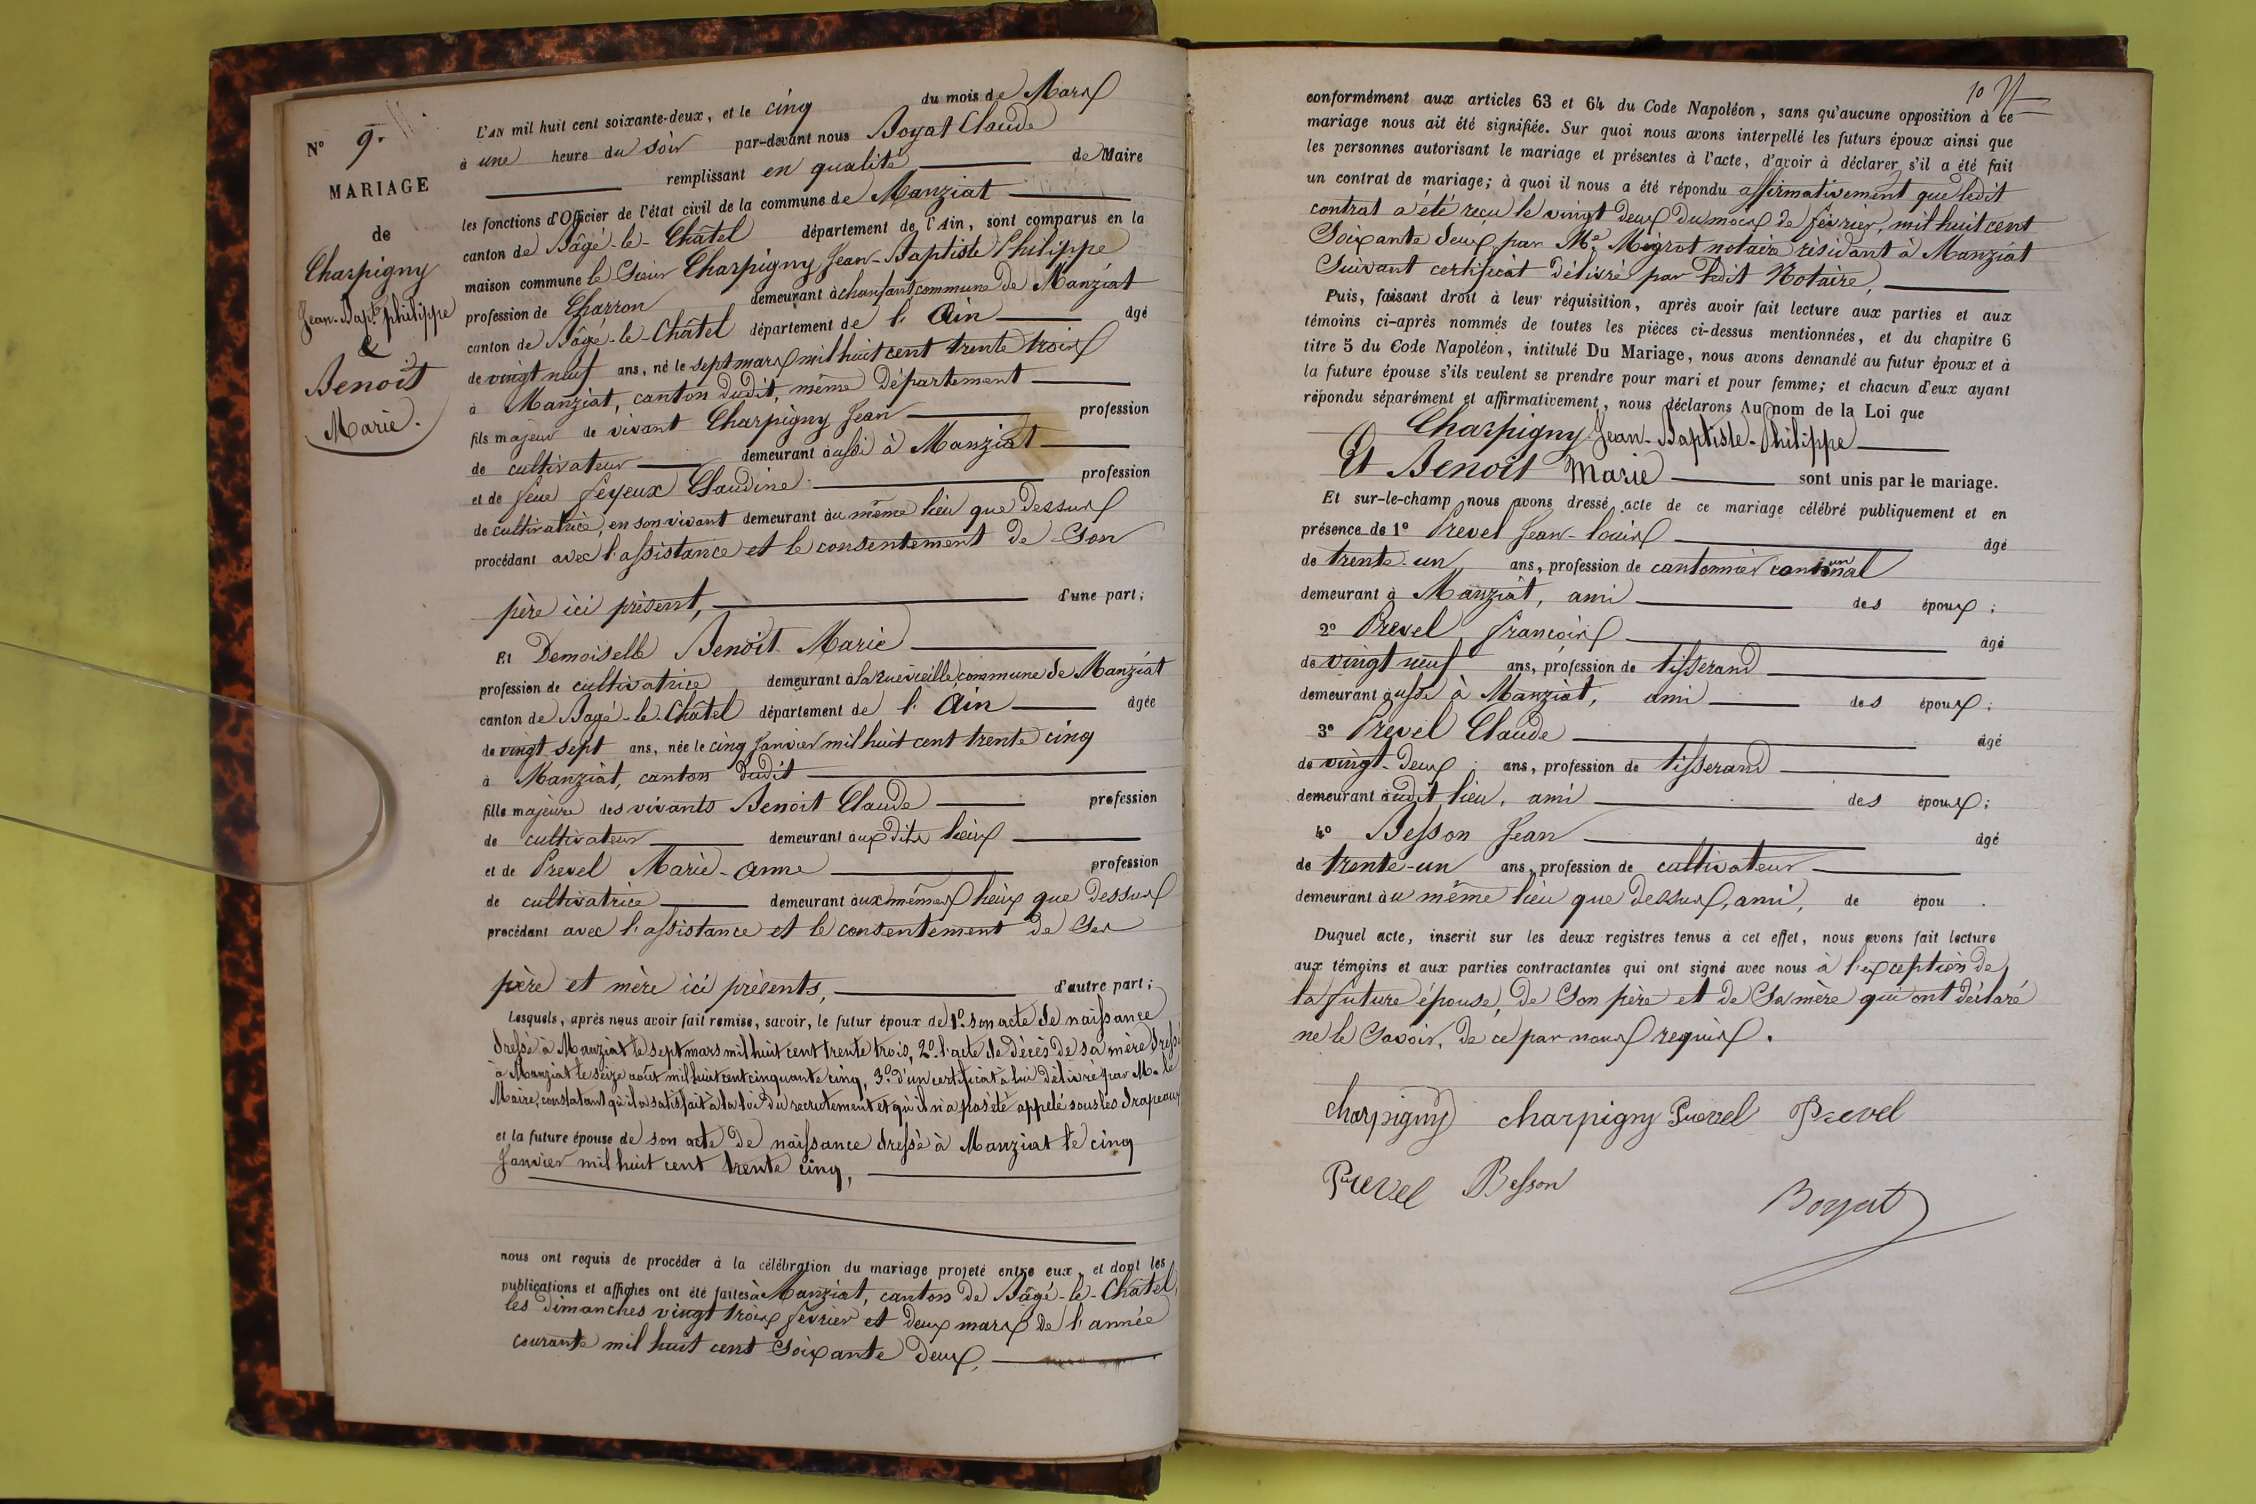 N° 9.
MARIAGE
de
Charpigny
Jean-Bapte philippe
&
Benoît
Marie.
L'AN mil huit cent soixante-deux, et le cinq du mois de Mars
à une heure du soir par-devant nous Boyat Claude
remplissant en qualité de Maire
les fonctions d'Officier de l'état civil de la commune de Manziat
canton de Bâgé-le-Châtel département de l'Ain, sont comparus en la
maison commune le Sieur Charpigny Jean-Baptiste Philippe
profession de Charron demeurant à chanfant commune de Manziat
canton de Bâgé-le-Châtel département de l'Ain âgé
de vingt neuf ans, né le sept mars mil huit cent trente trois
à Manziat, canton dudit, même département
fils majeur de vivant Charpigny Jean profession
de cultivateur demeurant aussi à Manziat
et de feue Feyeux Claudine profession
de cultivatrice, en son vivant demeurant au même lieu que dessus
procédant avec l'assistance et le consentement de Son
père ici présent, d'une part;
Et Demoiselle Benoît Marie
profession de cultivatrice demeurant à la rue vieille commune de Manziat
canton de Bagé-le-Châtel département de l'Ain âgée
de vingt sept ans, née le cinq Janvier mil huit cent trente cinq
à Manziat, canton dudit
fille majeure des vivants Benoit Claude profession
de cultivateur demeurant aux dits lieux
et de Prevel Marie-anne profession
de cultivatrice demeurant aux mêmes lieux que dessus
procédant avec l'assistance et le consentement de Ses
père et mère ici présents, d'autre part;
Lesquels, après nous avoir fait remise, savoir, le futur époux de 1° son acte de naissance
dressé à Manziat le sept mars mil huit cent trente trois, 2° l'acte de décès de sa mère dressé
à Manziat le seize août mil huit cent cinquante cinq, 3° d'un certificat à lui délivré par M. le
Maire, constatant qu'il a satisfait à la loi du recrutement et qu'il n'a pas été appelé sous les drapeaux
et la future épouse de son acte de naissance dressé à Manziat le cinq
Janvier mil huit cent trente cinq,
nous ont requis de procéder à la célébration du mariage projeté entre eux, et dont les
publications et affiches ont été faites à Manziat, canton de Bâgé-le-Châtel,
les dimanches vingt trois février et deux mars de l'année
courante mil huit cent Soixante deux,
10
conformément aux articles 63 et 64 du Code Napoléon, sans qu'aucune opposition à ce
mariage nous ait été signifiée. Sur quoi nous avons interpellé les futurs époux ainsi que
les personnes autorisant le mariage et présentes à l'acte, d'avoir à déclarer s'il a été fait
un contrat de mariage; à quoi il nous a été répondu affirmativement que ledit
contrat a été reçu le vingt deux du mois de février, mil huit cent
Soixante deux, par Me Migrot notaire résidant à Manziat
Suivant certificat délivré par ledit Notaire,
Puis, faisant droit à leur réquisition, après avoir fait lecture aux parties et aux
témoins ci-après nommés de toutes les pièces ci-dessus mentionnées, et du chapitre 6
titre 5 du Code Napoléon, intitulé Du Mariage, nous avons demandé au futur époux et à
la future épouse s'ils veulent se prendre pour mari et pour femme; et chacun d'eux ayant
répondu séparément et affirmativement, nous déclarons Au nom de la Loi que
Charpigny Jean-Baptiste-Philippe
Et Benoît Marie sont unis par le mariage.
Et sur-le-champ nous avons dressé acte de ce mariage célébré publiquement et en
présence de 1° Prevel Jean-Louis âgé
de trente-un ans, profession de cantonnier
demeurant à Manziat, ami des époux;
2° Prevel François âgé
de vingt neuf ans, profession de tisserand
demeurant aussi à Manziat, ami des époux;
3° Prevel Claude âgé
de vingt-deux ans, profession de tisserand
demeurant audit lieu, ami des époux;
4° Besson Jean âgé
de trente-un ans, profession de cultivateur
demeurant au même lieu que dessus, ami, de épou .
Duquel acte, inscrit sur les deux registres tenus à cet effet, nous avons fait lecture
aux témoins et aux parties contractantes qui ont signé avec nous à l'exception de
la future épouse, de Son père et de Sa mère qui ont déclaré
ne le Savoir, de ce par nous requis.
charpigny charpigny Prevel Prevel
Prevel Besson
Boyat